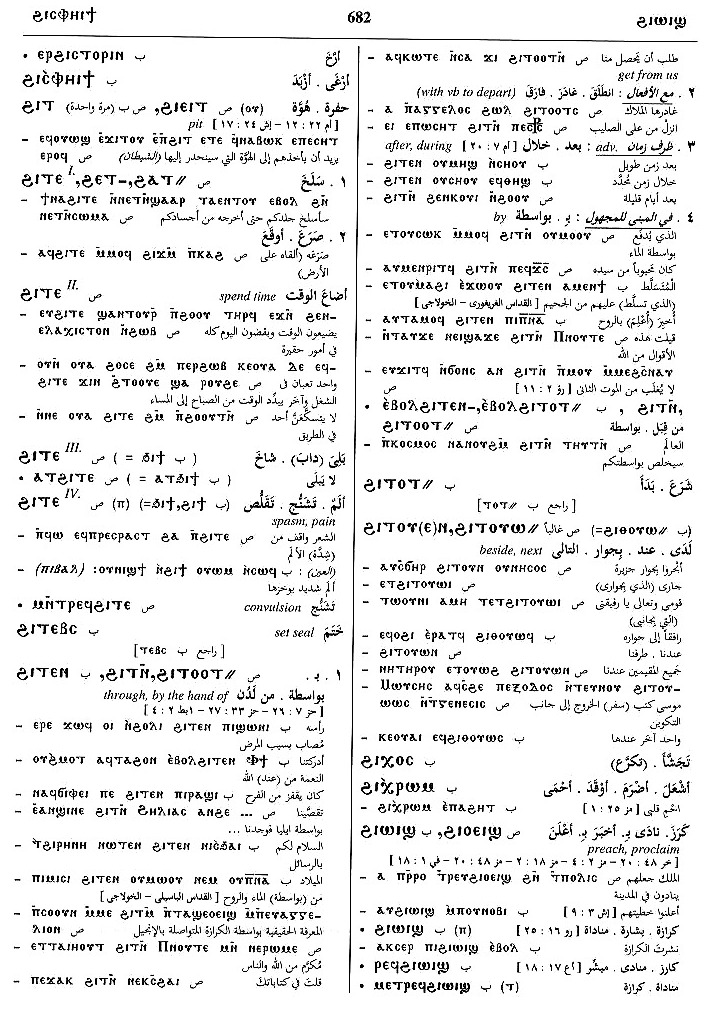 ϩⲓⲥⲫⲏⲓϯ 682 ϩⲓⲱⲓϣ
• ⲉⲣϩⲓⲥⲧⲟⲣⲓⲛ ب أرّخ
ϩⲓⲥ̀ⲫⲏⲓϯ ب أرْغَى . أزْبَدَ
ϩⲓⲧ ,ϩⲓⲉⲓⲧ ص (ⲟⲩ) ص ب (مرة واحدة) حفرة . هُوَّة
pit [أم ٢٢ : ١٢ – إش ٢٤ : ١٧]
– ⲉϥⲟⲩⲱϣ ⲉϫⲓⲧⲟⲩ ⲉⲡϩⲓⲧ ⲉⲧⲉ ϥⲛⲁⲃⲱⲕ ⲉⲡⲉⲥⲛⲧ
ⲉⲣⲟϥ ص يريد أن يأخذهم إلى الهوّة التي سينحدر إليها (الشيطان)
ϩⲓⲧⲉ I. ,ϩⲉⲧ–,ϩⲁⲧ// ص ١. سَلَخَ
– ϯⲛⲁϩⲓⲧⲉ ⲛ̄ⲛⲉⲧⲛ̄ϣⲁⲁⲣ ⲧⲁⲉⲛⲧⲟⲩ ⲉⲃⲟⲗ ϩⲛ̄
ⲛⲉⲧⲛ̄ⲥⲱⲙⲁ ص سأسلخ جلدكم حتى أخرجه من أجسادكم
٢. صَرَعَ . أوقَعَ
– ⲁϥϩⲓⲧⲉ ⲙ̄ⲙⲟϥ ϩⲓϫⲙ̄ ⲡⲕⲁϩ ص صَرَعَه (ألقاه على
الأرض)
ϩⲓⲧⲉ II. ص spend time أضاعَ الوقت
– ⲉⲩϩⲓⲧⲉ ϣⲁⲛⲧⲟⲩⲣ̄ ⲡ̄ϩⲟⲟⲩ ⲧⲏⲣϥ ⲉϫⲛ̄ ϩⲉⲛ-
ⲉⲗⲁⲭⲓⲥⲧⲟⲛ ⲛ̄ϩⲱⲃ ص يضيعون الوقت ويقضون اليوم كله
في أمور حقيرة
– ⲟⲩⲛ̄ ⲟⲩⲁ ϩⲟⲥⲉ ϩⲙ̄ ⲡⲉϥϩⲱⲃ ⲕⲉⲟⲩⲁ ⲇⲉ ⲉϥ-
ϩⲓⲧⲉ ϫⲓⲛ ϩⲧⲟⲟⲩⲉ ϣⲁ ⲣⲟⲩϩⲉ ص واحد تعبان في
الشغل وآخر يبدّد الوقت من الصباح إلى المساء
– ⲛ̄ⲛⲉ ⲟⲩⲁ ϩⲓⲧⲉ ϩⲙ̄ ⲡⲉϩⲟⲟⲩⲧⲛ̄ ص لا يتسكّعنّ أحد
في الطريق
ϩⲓⲧⲉ III. ص ( = ϧⲓϯ ب ) بَلِيَ (ذابَ) . شاخَ
• ⲁⲧϩⲓⲧⲉ ص ( = ⲁⲧϧⲓϯ ب ) لا يَبلَى
ϩⲓⲧⲉ IV. ص (ⲡ) (=ϧⲓϯ,ϩⲓϯ ب) ألَمْ . تَشَنُّج . تَقَلُّص
spasm, pain
– ⲡϥⲱ ⲉϥⲡⲣⲉⲥⲣⲁⲥⲧ ϩⲁ ⲡ̄ϩⲓⲧⲉ ص الشعر واقف من
(شدّة) الألم
– (ⲡⲓⲃⲁⲗ) :ⲟⲩⲛⲓϣϯ ⲛ̀ϩⲓϯ ⲟⲩⲱⲙ ⲛ̀ⲥⲱϥ ب (العين) :
ألم شديد يوخزها
• ⲙⲛ̄ⲧⲣⲉϥϩⲓⲧⲉ ص convulsion تَشَنُّج
ϩⲓⲧⲉⲃⲥ ب set seal خَتَمَ
[راجع ب ⲧⲉⲃⲥ]
ϩⲓⲧⲉⲛ ب ,ϩⲓⲧⲛ̄,ϩⲓⲧⲟⲟⲧ// ص ١. بـ .
through, by the hand of بواسطة . من لَدُن
– ⲉⲣⲉ ϫⲱϥ ⲟⲓ ⲛ̀ϩⲟⲗⲓ ϩⲓⲧⲉⲛ ⲡⲓϣⲱⲛⲓ ب رأسه
مُصاب بسبب المرض
– ⲟⲩϩ̀ⲙⲟⲧ ⲁϥⲧⲁϩⲟⲛ ⲉ̀ⲃⲟⲗϩⲓⲧⲉⲛ Ⲫϯ ب أدركتنا
النعمة من (عند) الله
– ⲛⲁϥϭⲓϥⲉⲓ ⲡⲉ ϩⲓⲧⲉⲛ ⲡⲓⲣⲁϣⲓ ب كان يقفز من الفرح
– ⲉ̀ⲁⲛϣⲓⲛⲉ ϩⲓⲧⲛ̄ ϩⲏⲗⲓⲁⲥ ⲁⲛϩⲉ ... ص تقصَّينا
بواسطة ايليا فوجدنا ...
– ⲧ̀ϩⲓⲣⲏⲛⲏ ⲛⲱⲧⲉⲛ ϩⲓⲧⲉⲛ ⲛⲓⲥϧⲁⲓ ب السلام لكم
بالرسائل
– ⲡⲓⲙⲓⲥⲓ ϩⲓⲧⲉⲛ ⲟⲩⲙⲱⲟⲩ ⲛⲉⲙ ⲟⲩⲡⲛ̄ⲁ̄ ب الميلاد
من (بواسطة) الماء والروح [القداس الباسيلى – الخولاجي]
– ⲡ̄ⲥⲟⲟⲩⲛ ⲙ̄ⲙⲉ ϩⲓⲧⲙ̄ ⲡⲧⲁϣⲉⲟⲉⲓϣ ⲙ̄ⲡⲉⲩⲁⲅⲅⲉ-
ⲗⲓⲟⲛ ص المعرفة الحقيقية بواسطة الكرازة المتواصلة بالإنجيل
– ⲉⲧⲧⲁⲓⲏⲟⲩⲧ ϩⲓⲧⲙ̄ Ⲡⲛⲟⲩⲧⲉ ⲙⲛ̄ ⲛⲉⲣⲱⲙⲉ ص
مُكرَّم من الله والناس
– ⲡⲉϫⲁⲕ ϩⲓⲧⲛ̄ ⲛⲉⲕⲥ̄ϩⲁⲓ ص قلتَ في كتاباتك
– ⲁϥⲕⲱⲧⲉ ⲛ̄ⲥⲁ ϫⲓ ϩⲓⲧⲟⲟⲧⲛ̄ ص طلب أن يحصل منا
get from us
٢. مع الأفعال : انطَلَقَ . غادَرَ . فارَقَ (with vb to depart)
– ⲁ ⲡ̄ⲁⲅⲅⲉⲗⲟⲥ ϩⲱⲗ ϩⲓⲧⲟⲟⲧⲥ ص غادرها الملاك
– ⲉⲓ ⲉⲡⲱⲥⲏⲧ ϩⲓⲧⲙ̄ ⲡⲉⲥ⳨ⲟⲥ ص انزلْ من على الصليب
٣. ظرف زمان .adv : بعد . خلال [أم ٧ : ٢٠] after, during
– ϩⲓⲧⲉⲛ ⲟⲩⲙⲏϣ ⲛ̀ⲥⲏⲟⲩ ب بعد زمن طويل
– ϩⲓⲧⲉⲛ ⲟⲩⲥⲏⲟⲩ ⲉϥⲑⲏϣ ب خلال زمن مُحدَّد
– ϩⲓⲧⲛ̄ ϩⲉⲛⲕⲟⲩⲓ ⲛ̄ϩⲟⲟⲩ ص بعد أيام قليلة
٤. في المبنى للمجهول : بـ . بواسطة by
– ⲉⲧⲟⲩⲥⲱⲕ ⲙ̄ⲙⲟⲟⲩ ϩⲓⲧⲛ̄ ⲟⲩⲙⲟⲟⲩ ص الذي يُدفَع
بواسطة الماء
– ⲁⲩⲙⲉⲛⲣⲓⲧϥ ϩⲓⲧⲙ̄ ⲡⲉϥϫ̄ⲥ̄ ص كان محبوباً من سيده
– ⲉⲧⲟⲩⲙⲁϩⲓ ⲉ̀ϫⲱⲟⲩ ϩⲓⲧⲉⲛ ⲁⲙⲉⲛϯ ب المُتسلَّط
(الذي تسلَّط) عليهم من الجحيم [القداس الغريغورى – الخولاجي]
– ⲁⲩⲧⲁⲙⲟϥ ϩⲓⲧⲉⲛ ⲡⲓⲡ̄ⲛ̄ⲁ̄ ب أُخبِرَ (أُعْلِمَ) بالروح
– ⲛ̄ⲧⲁⲩϫⲉ ⲛⲉⲓϣⲁϫⲉ ϩⲓⲧⲙ̄ Ⲡⲛⲟⲩⲧⲉ ص قيلت هذه
الأقوال من الله
– ⲉⲩϫⲓⲧϥ ⲛ̄ϭⲟⲛⲥ ⲁⲛ ϩⲓⲧⲙ̄ ⲡⲙⲟⲩ ⲙ̄ⲙⲉϩⲥⲛⲁⲩ
ص لا يُغلَب من الموت الثاني [رؤ ٢ : ١١]
• ⲉ̀ⲃⲟⲗϩⲓⲧⲉⲛ–,ⲉⲃⲟⲗϩⲓⲧⲟⲧ// ب , ϩⲓⲧⲛ̄,
ϩⲓⲧⲟⲟⲧ// ص من قِبَل . بواسطة
– ⲡ̄ⲕⲟⲥⲙⲟⲥ ⲛⲁⲛⲟⲩϩⲙ̄ ϩⲓⲧⲛ̄ ⲧⲏⲩⲧⲛ̄ ص العالم
سيخلص بواسطتكم
ϩⲓⲧⲟⲧ// ب شَرَعَ . بَدَأَ
[راجع ب //ⲧⲟⲧ]
ϩⲓⲧⲟⲩ(ⲉ)ⲛ,ϩⲓⲧⲟⲩⲱ// ص غالباً (=ϩⲓⲑⲟⲩⲱ// ب)
beside, next لَدَى . عند . بجوار . التالى
– ⲁⲩⲥϭⲏⲣ ϩⲓⲧⲟⲩⲛ ⲟⲩⲛⲏⲥⲟⲥ ص أبحروا بجوار جزيرة
– ⲉⲧϩⲓⲧⲟⲩⲱⲓ ص جارى (الذي بجوارى)
– ⲧⲱⲟⲩⲛⲓ ⲁⲙⲏ ⲧⲉⲧϩⲓⲧⲟⲩⲱⲓ ص قومى وتعالى يا رفيقتى
(التي بجانبى)
– ⲉϥⲟϩⲓ ⲉ̀ⲣⲁⲧϥ ϩⲓⲑⲟⲩⲱϥ ب راقفاً إلى جواره
– ϩⲓⲧⲟⲩⲱⲛ ص عندنا . طرفنا
– ⲛⲏⲧⲏⲣⲟⲩ ⲉⲧⲟⲩⲱϩ ϩⲓⲧⲟⲩⲱⲛ ص جميع المقيمين عندنا
– Ⲙⲱⲩⲥⲏⲥ ⲁϥⲥ̄ϩⲉ ⲡⲉⲝⲟⲇⲟⲥ ⲛ̄ⲧⲉⲩⲛⲟⲩ ϩⲓⲧⲟⲩ-
ⲱⲱⲥ ⲛ̄ⲧⲅⲉⲛⲉⲥⲓⲥ ص موسى كتب (سفر) الخروج إلى جانب
التكوين
– ⲕⲉⲟⲩⲁⲓ ⲉϥϩⲓⲑⲟⲩⲱⲥ ب واحد آخر عندها
ϩⲓⲭⲟⲥ ب تَجَشَّأَ . (تكرَّعَ)
ϩⲓⲭ̀ⲣⲱⲙ ب أشْعَلَ . أضْرَمَ . أوْقَدَ . أحْمَى
– ϩⲓⲭ̀ⲣⲱⲙ ⲉ̀ⲡⲁϩⲏⲧ ب احْمِ قلبى [مز ٢٥ : ١]
ϩⲓⲱⲓϣ ب ,ϩⲓⲟⲉⲓϣ ص كَرَزَ. نادَى بـ . أخْبَرَ بـ . أعْلَنَ
preach, proclaim
– ⲁ ⲡ̄ⲣⲣⲟ ⲧⲣⲉⲩϩⲓⲟⲉⲓϣ ϩⲛ̄ ⲧⲡⲟⲗⲓⲥ ص الملك جعلهم
ينادون في المدينة
– ⲁⲩϩⲓⲱⲓϣ ⲙ̀ⲡⲟⲩⲛⲟⲃⲓ ب أعلنوا خطيتهم [إش ٣ : ٩]
• ϩⲓⲱⲓϣ ب (ⲡ) كرازة . بشارة . مناداة [رو ١٦ : ٢٥]
– ⲁⲕⲥⲉⲣ ⲡⲓϩⲓⲱⲓϣ ⲉ̀ⲃⲟⲗ ب نشرتَ الكرازة
• ⲣⲉϥϩⲓⲱⲓϣ ب كارز . منادى . مبشِّر [أع ١٧ : ١٨]
• ⲙⲉⲧⲣⲉϥϩⲓⲱⲓϣ ب (ⲧ) مناداة . كرازة